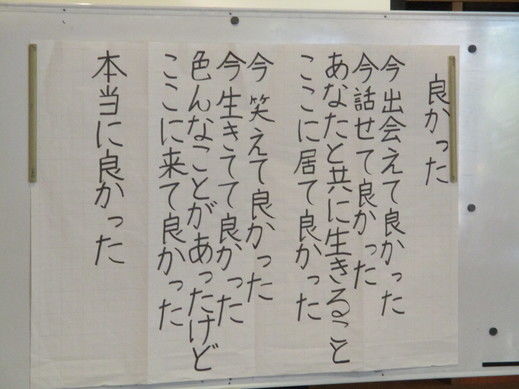 良かった
今 出会えて良かった
今 話せて良かった
あなたと共に生きること
ここに居て良かった
今 笑えて良かった
今 生きてて良かった
色んなことがあったけど
ここに来て良かった
本当に良かった